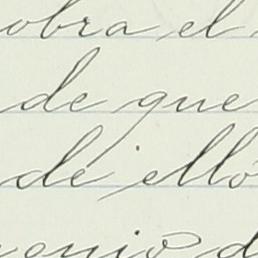 obra el
de que
de ello